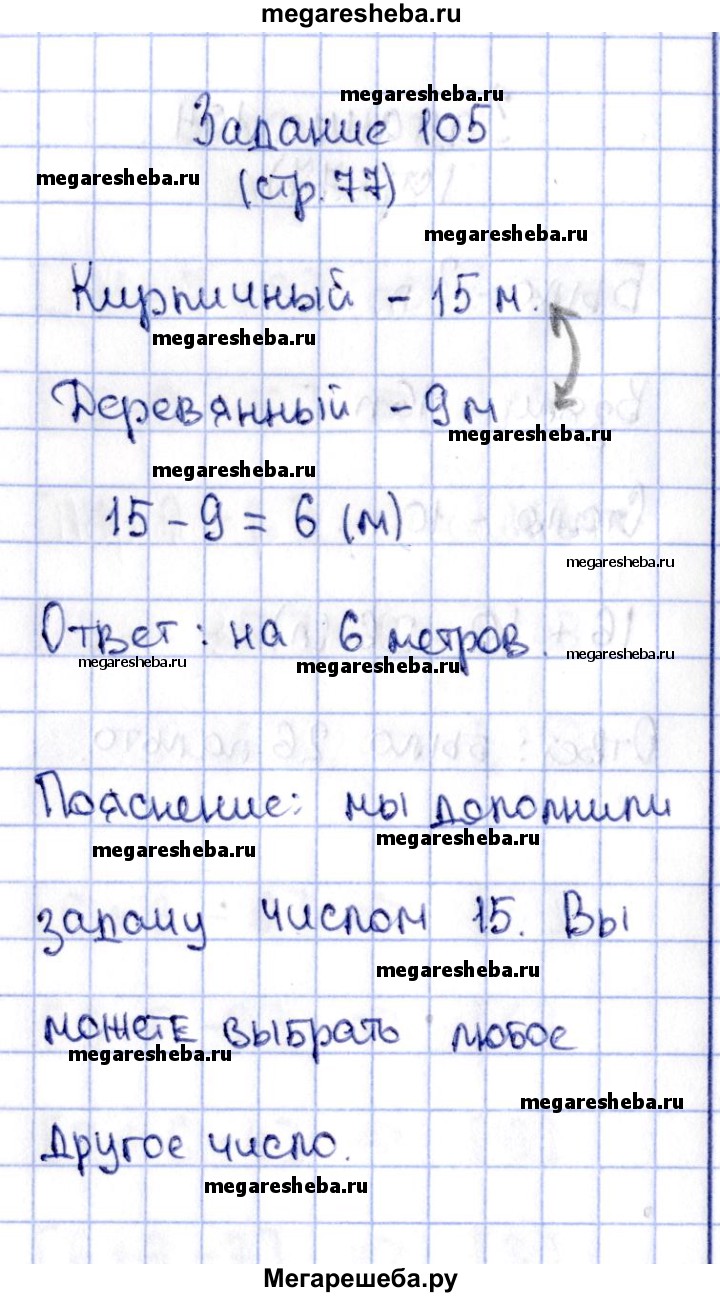 megaresheba.ru
megaresheba.ru
Задание 105
megaresheba.ru
(стр. 77)
megaresheba.ru
Кирпичный - 15 м.
megaresheba.ru
Деревянный - 9 м
megaresheba.ru
megaresheba.ru
15 - 9 = 6 (м)
megaresheba.ru
Ответ: на 6 метров.
megaresheba.ru
megaresheba.ru
megaresheba.ru
Пояснение: мы дополнили
megaresheba.ru
megaresheba.ru
задачу числом 15. Вы
megaresheba.ru
можете выбрать любое
megaresheba.ru
megaresheba.ru
другое число.
megaresheba.ru
Мегарешеба.ру